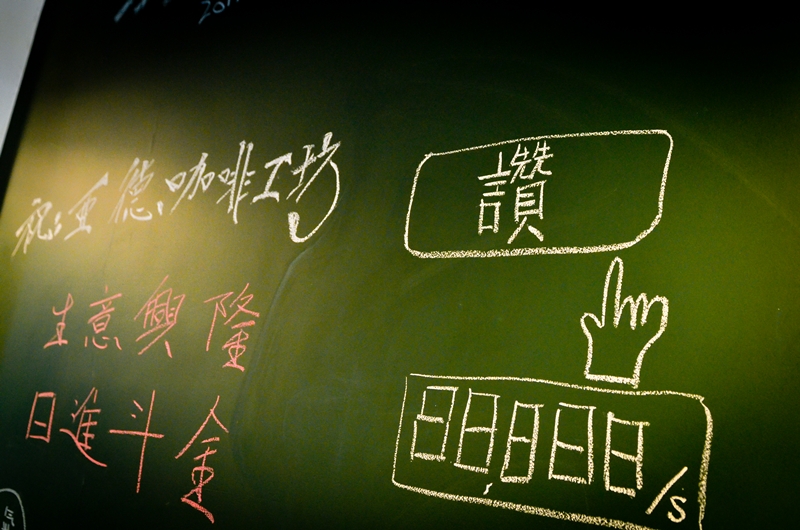 祝:重德咖啡工坊
生意興隆
日進斗金
讚
88888/s